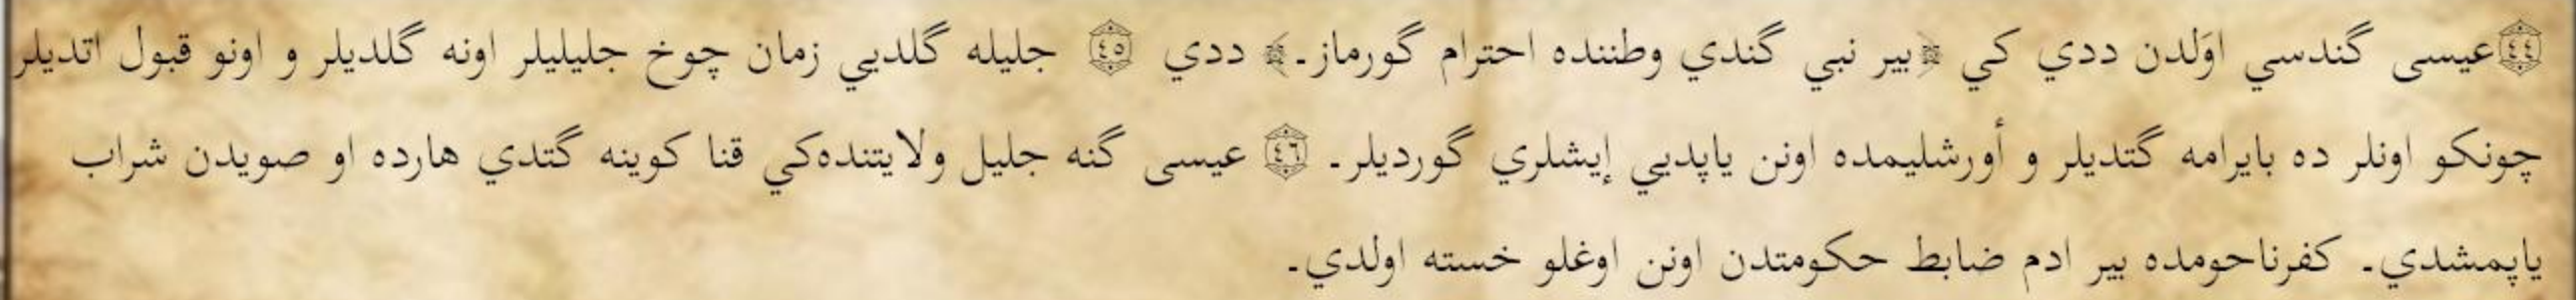 ﴿٤٤﴾عيسى گندسي اوَلدن ددي كي ﴿بير نبي گندي وطننده احترام گورماز۔﴾ ددي ﴿٤٥﴾ جليله گلديي زمان چوخ جليليلر اونه گلديلر و اونو قبول اتديلر
چونكو اونلر ده بايرامه گتديلر و أورشليمده اونن ياپديي إيشلري گورديلر۔ ﴿٤٦﴾ عيسى گنه جليل ولايتنده‌كي قنا كوينه گتدي هارده او صويدن شراب
ياپمشدي۔ كفرناحومده بير ادم ضابط حكومتدن اونن اوغلو خسته اولدي۔